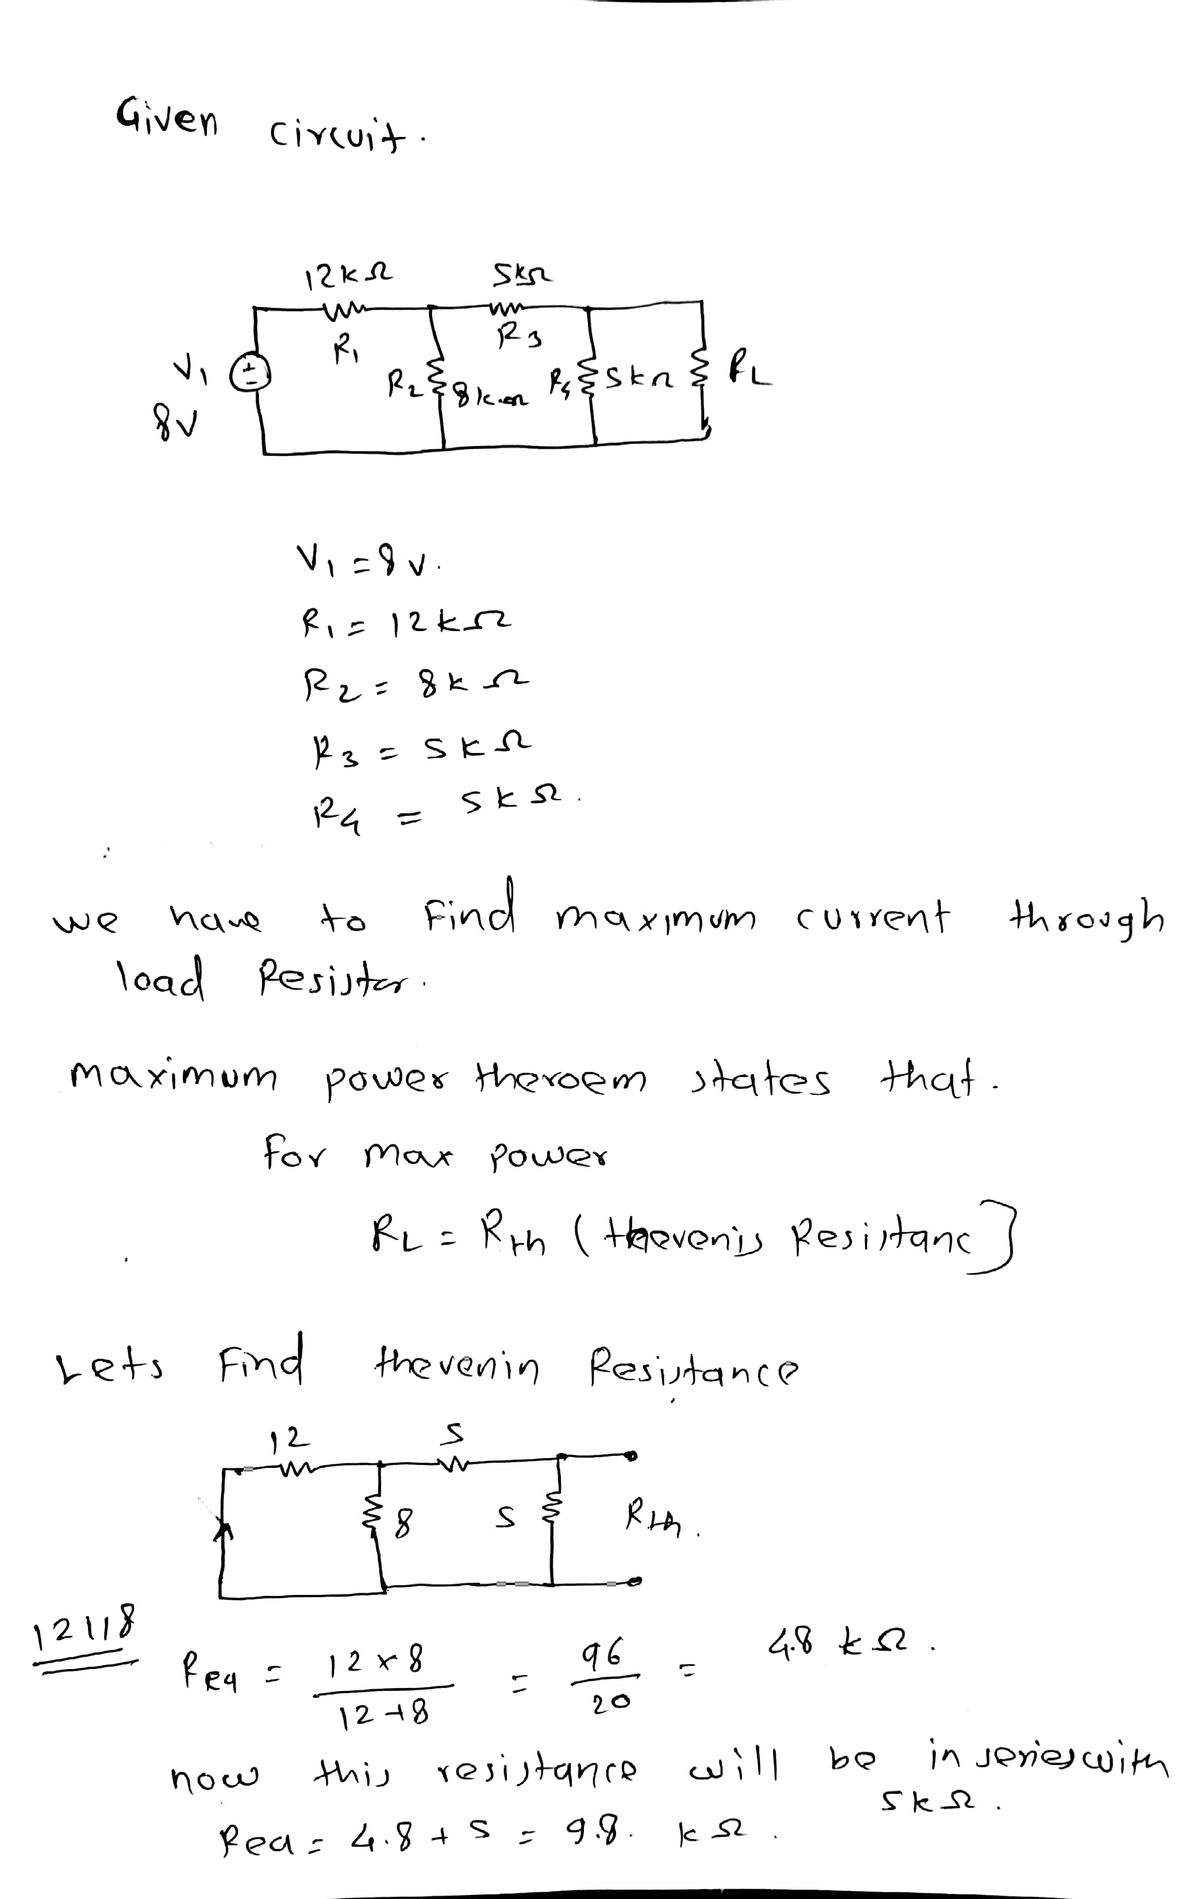 Given circuit.
12kΩ 5kΩ
R1 R3
V1 + - R2 8kΩ R4 5kΩ RL
8V
V1 = 8V.
R1 = 12kΩ
R2 = 8kΩ
R3 = 5kΩ
R4 = 5kΩ.
we have to Find maximum current through
load Resistor.
maximum power theroem states that.
for max power
RL = Rth (thevenis Resistanc]
Lets Find thevenin Resistance
12 5
8 5 Rth.
12118
Req = 12 x 8 / 12+8 = 96 / 20 = 4.8 kΩ.
now this resistance will be in series with
5kΩ.
Req = 4.8 + 5 = 9.8. kΩ.